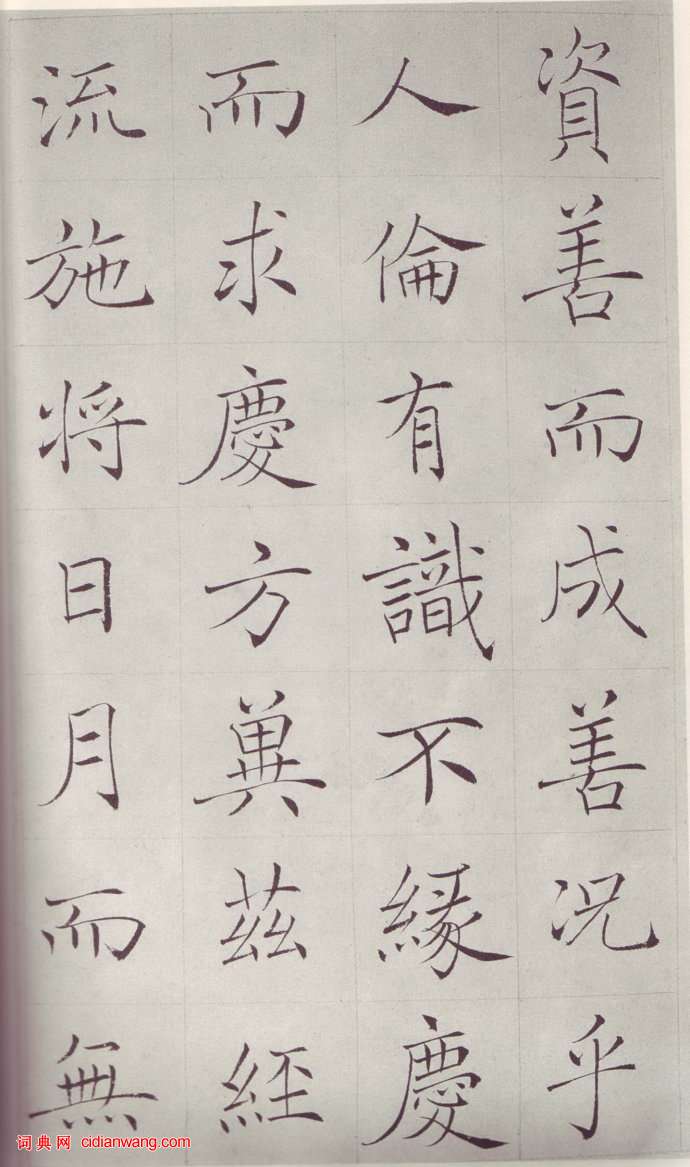 資善而成善況乎
人倫有識不緣慶
而求慶方冀茲經
流施將日月而無
词典网 cidianwang.com